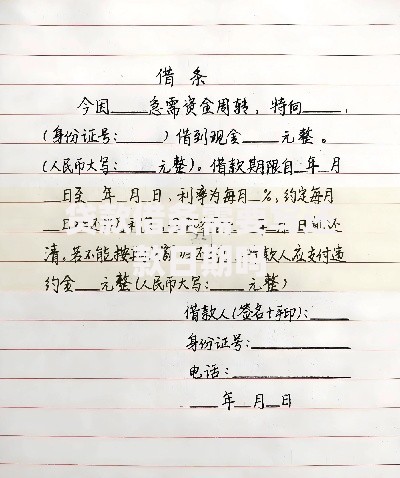 借条
今因____急需资金周转，特向____，
(身份证号:____)借到现金____元整。
(人民币大写:____元整)。借款期限自_年_月
_日至_年_月_日，利率为每月_%，约定每月
日还
款日期吗
清，若不能按 款人应支付违
约金__元整(人民币大写:____元整)
借款人(签名+手印):____
身份证号:________
电话:________
__年__月__日